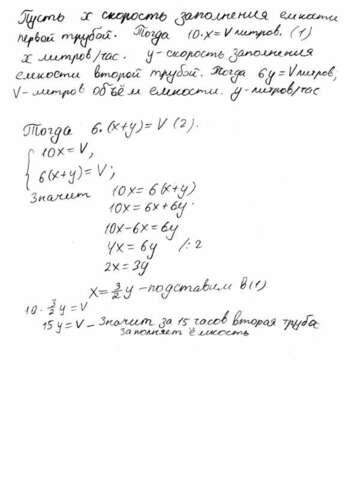 Пусть x скорость заполнения емкости
первой трубой. Тогда 10·x = V литров. (1)
x литров/час. y - скорость заполнения
емкости второй трубой. Тогда 6y = V литров;
V - литров объём емкости. y - литров/час
Тогда 6·(x+y) = V (2).
{ 10x = V,
6(x+y) = V;
Значит 10x = 6(x+y)
10x = 6x + 6y.
10x - 6x = 6y
4x = 6y /:2
2x = 3y
x = 3/2 y - подставим в (1)
10 · 3/2 y = V
15y = V - Значит за 15 часов вторая труба
заполняет ёмкость